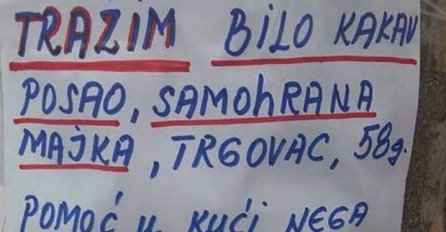 TRAZIM BILO KAKAV
POSAO, SAMOhRANA
MAJKA, TRGOVAC, 58g.
POMOĆ U KUĆI NEGA